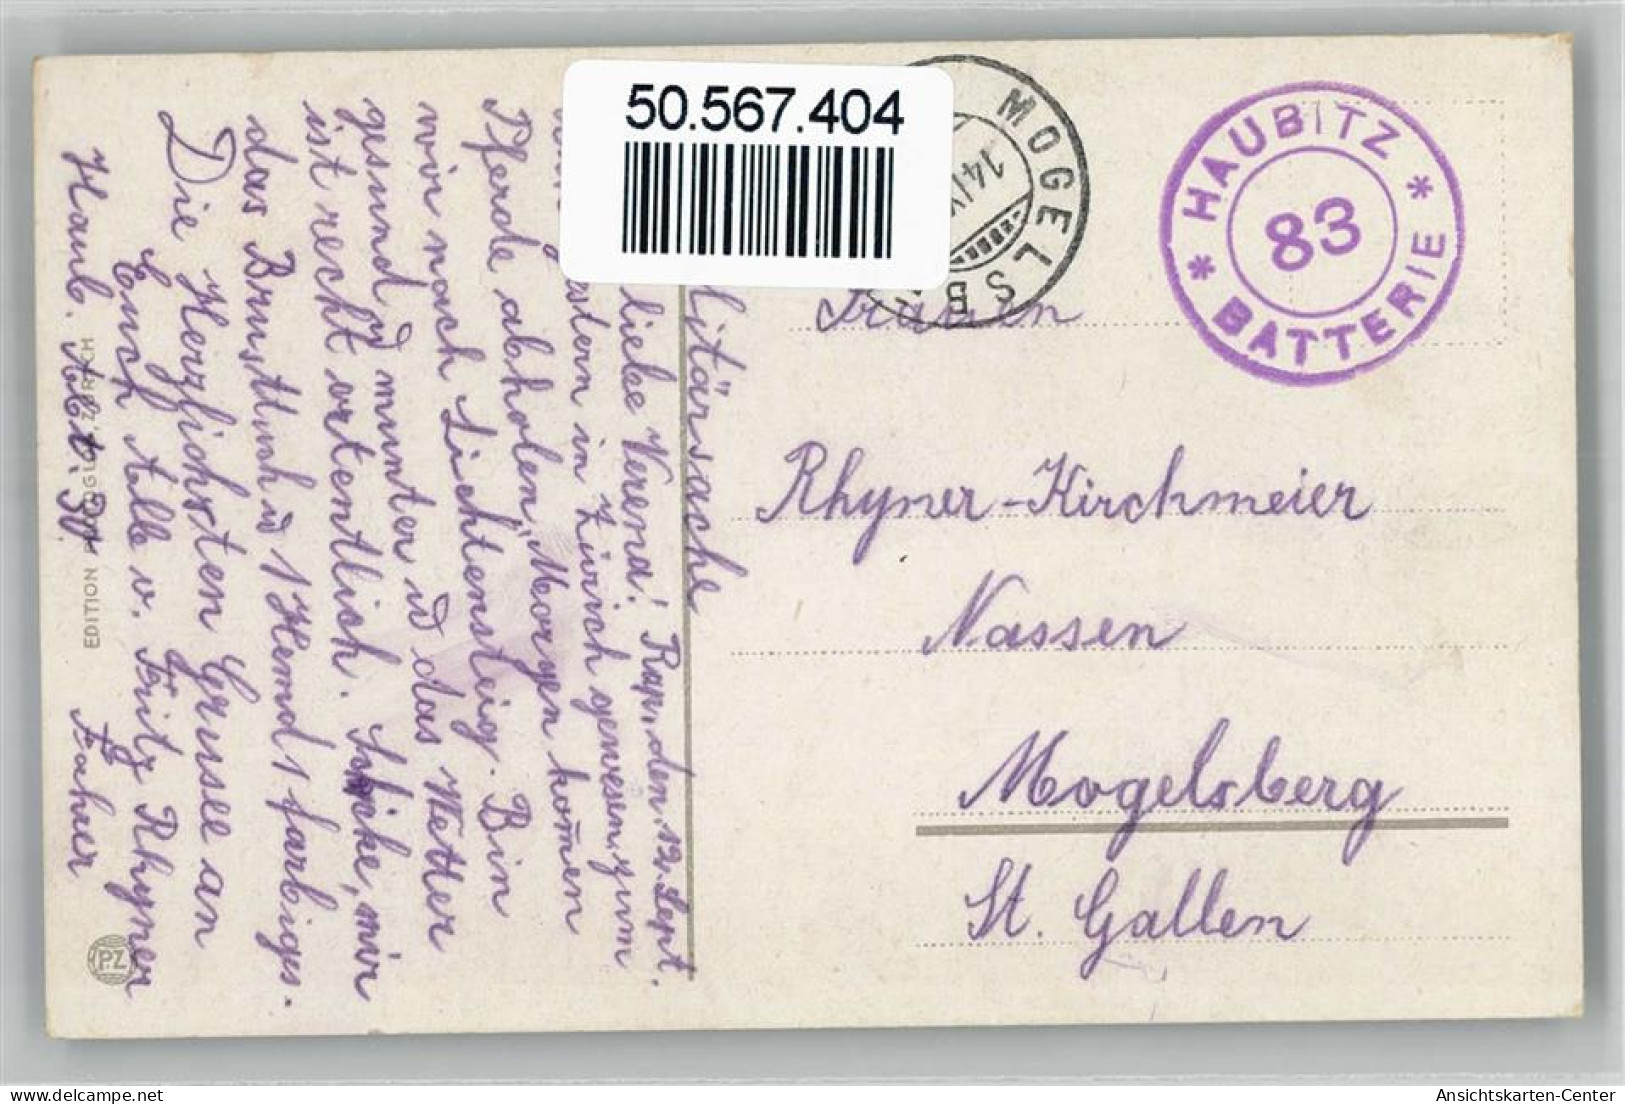 50.567.404
MOGELSB
14.IX
* HAUBITZ *
83
BATTERIE
litärsache
Frauen
Rhyner-Kirchmeier
Nassen
Mogelsberg
St. Gallen
Rap, den 12. Sept.
liebe Verena!
stern in Zürich gewesen, zum
Pferde abholen, Morgen kom̄en
wir nach Lichtensteig. Bin
gesund & munter u das Wetter
ist recht ortentlich. Schicke, mir
das Brusttuch u 1 Hemd 1 farbiges.
Die Herzlichsten Grüsse an
Euch Alle v. Fritz Rhyner
Haub. Abt. 30 Fahrer
EDITION ZÜRICH
PZ
Ansichtskarten-Center